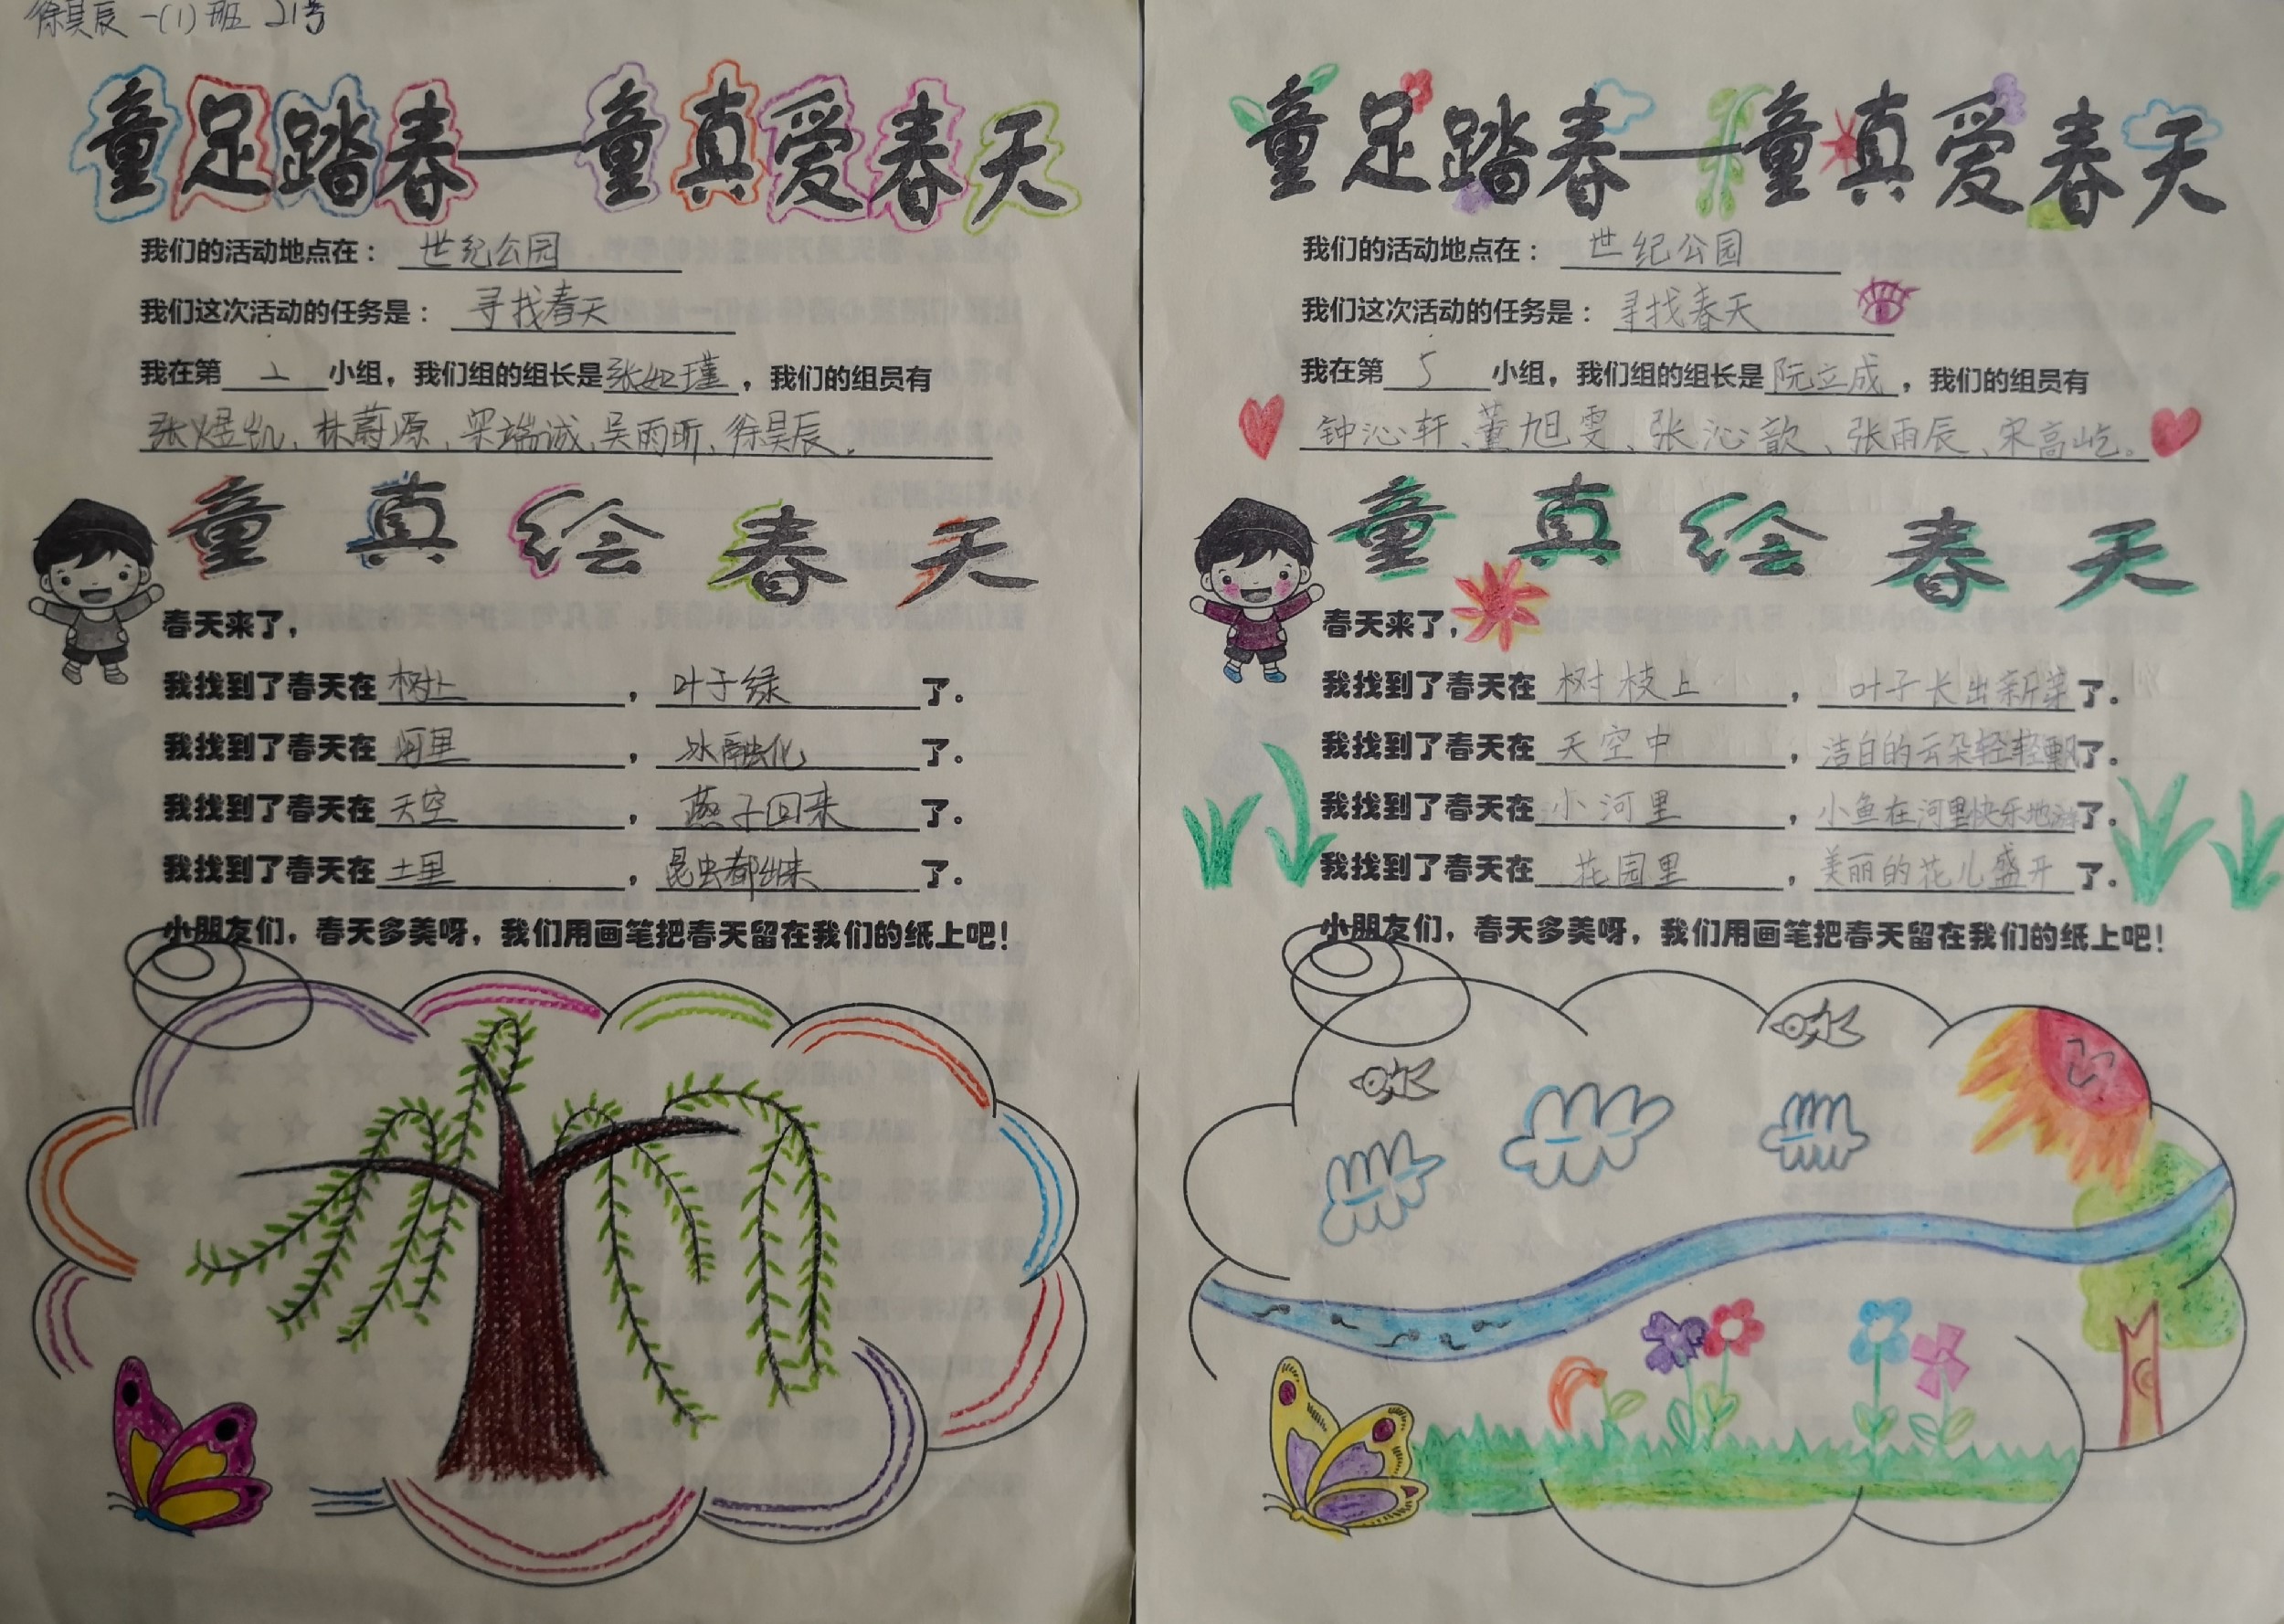 徐昊辰 一(1)班 21号
童足踏春——童真爱春天
我们的活动地点在：世纪公园
我们这次活动的任务是：寻找春天
我在第2小组，我们组的组长是张如瑾，我们的组员有
张煜凯、林蔚源、梁端诚、吴雨昕、徐昊辰。
童真绘春天
春天来了，
我找到了春天在树上，叶子绿了。
我找到了春天在河里，冰融化了。
我找到了春天在天空，燕子回来了。
我找到了春天在土里，昆虫都出来了。
小朋友们，春天多美呀，我们用画笔把春天留在我们的纸上吧！
童足踏春——童真爱春天
我们的活动地点在：世纪公园
我们这次活动的任务是：寻找春天
我在第5小组，我们组的组长是阮立成，我们的组员有
钟沁轩、董旭雯、张沁歆、张雨辰、宋高屹。
童真绘春天
春天来了，
我找到了春天在树枝上，叶子长出新芽了。
我找到了春天在天空中，洁白的云朵轻轻飘了。
我找到了春天在小河里，小鱼在河里快乐地游了。
我找到了春天在花园里，美丽的花儿盛开了。
小朋友们，春天多美呀，我们用画笔把春天留在我们的纸上吧！